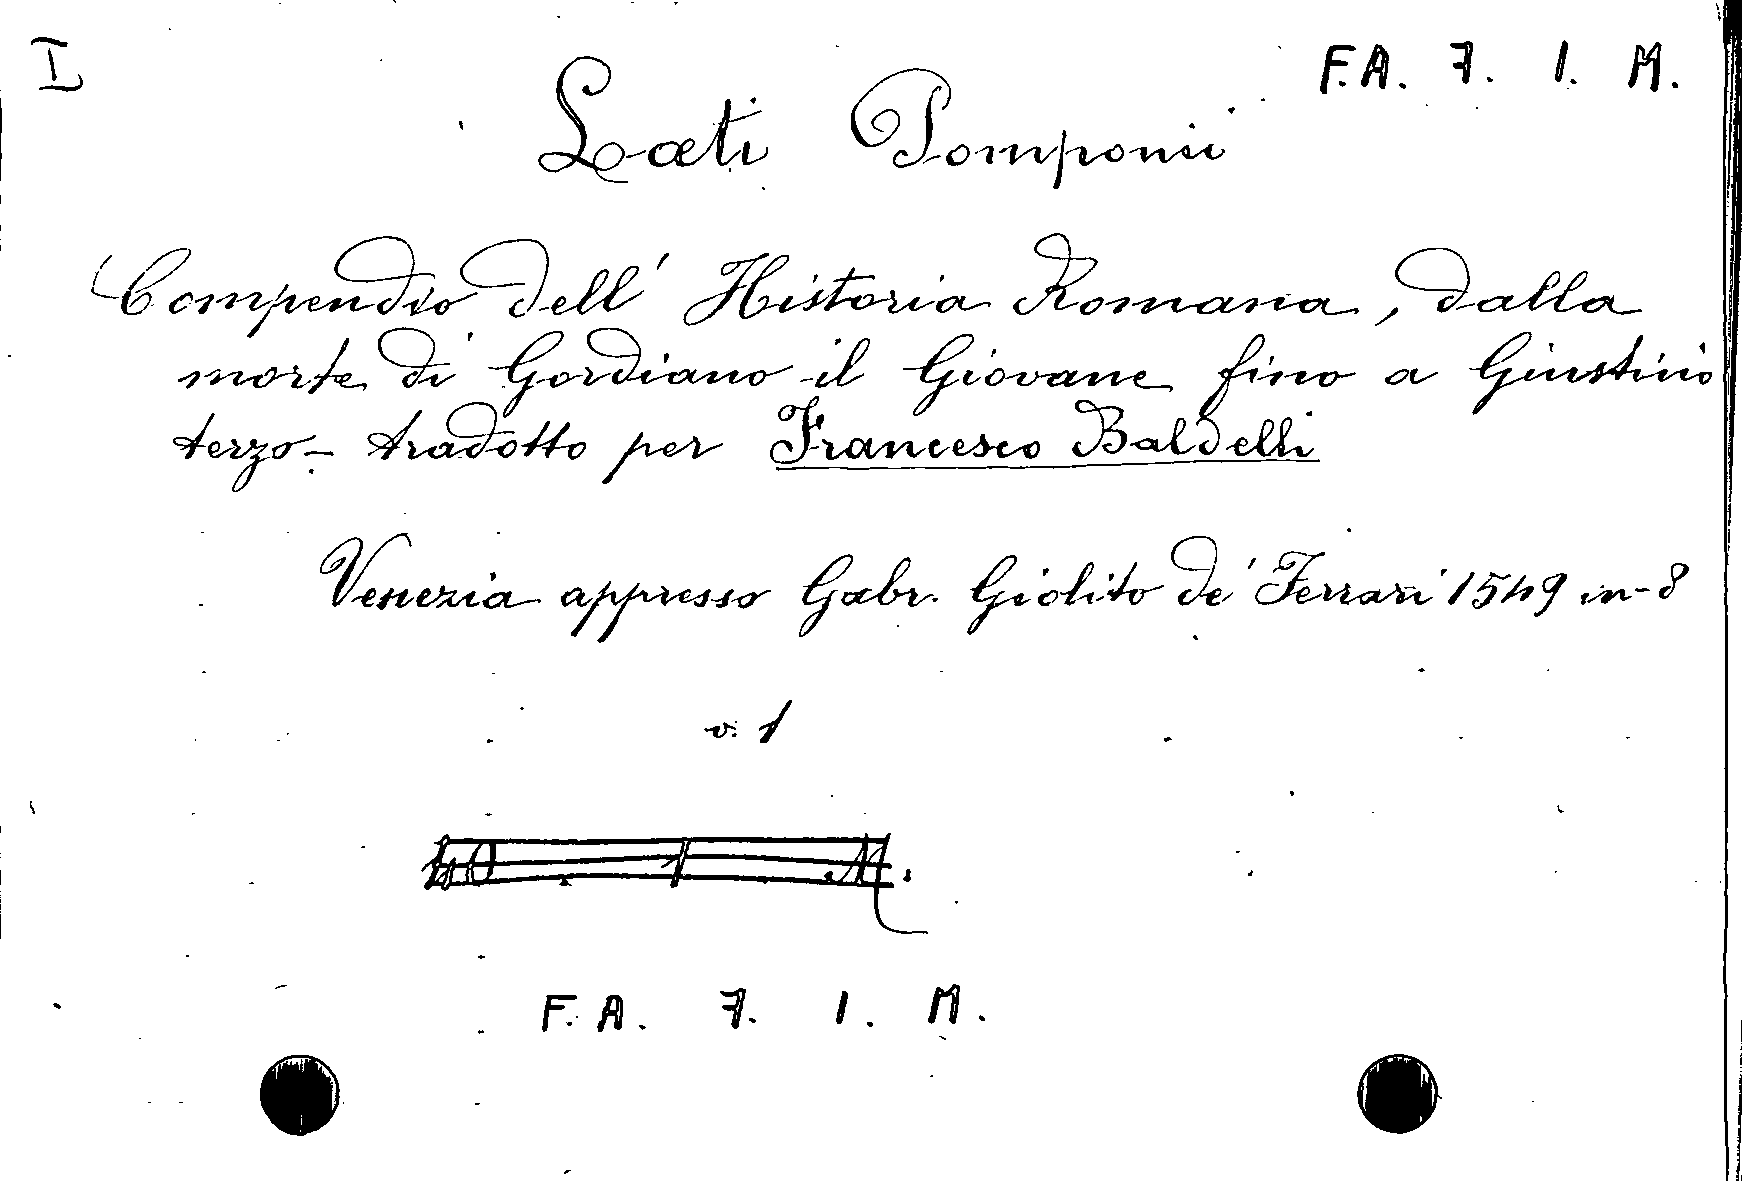 I
F.A. 7. 1. M.
Læti Pomponii
Compendio dell' Historia Romana, dalla
morte di Gordiano il Giovane fino a Giustino
terzo - tradotto per Francesco Baldelli
Venezia appresso Gabr. Giolito de' Ferrari 1549 in-8
v. 1
40 . 1 M.
F.A. 7. 1. M.